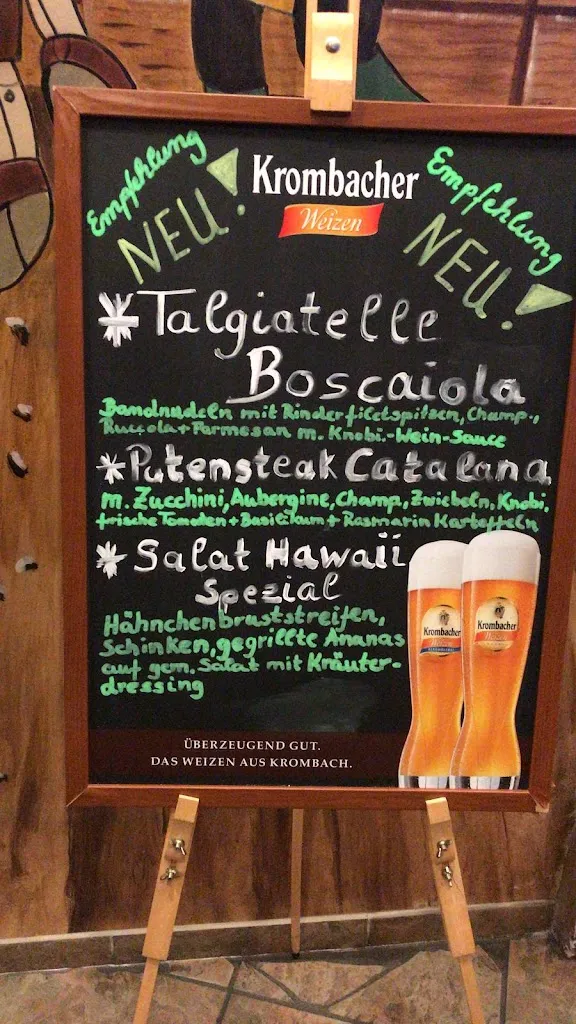 Empfehlung
NEU!
Krombacher
Weizen
Empfehlung
NEU!
Talgiatelle
Boscaiola
Bandnudeln mit Rinderfiletspitzen, Champ.,
Ruccola + Parmesan m. Knobi.-Wein-Sauce
Putensteak Catalana
m. Zucchini, Aubergine, Champ, Zwiebeln, Knobi.
frische Tomaten + Basilikum + Rasmarin Kartoffeln
Salat Hawaii
Spezial
Hähnchenbruststreifen,
Schinken, gegrillte Ananas
auf gem. Salat mit Kräuter-
dressing
Krombacher
Weizen
Krombacher
Weizen
ÜBERZEUGEND GUT.
DAS WEIZEN AUS KROMBACH.